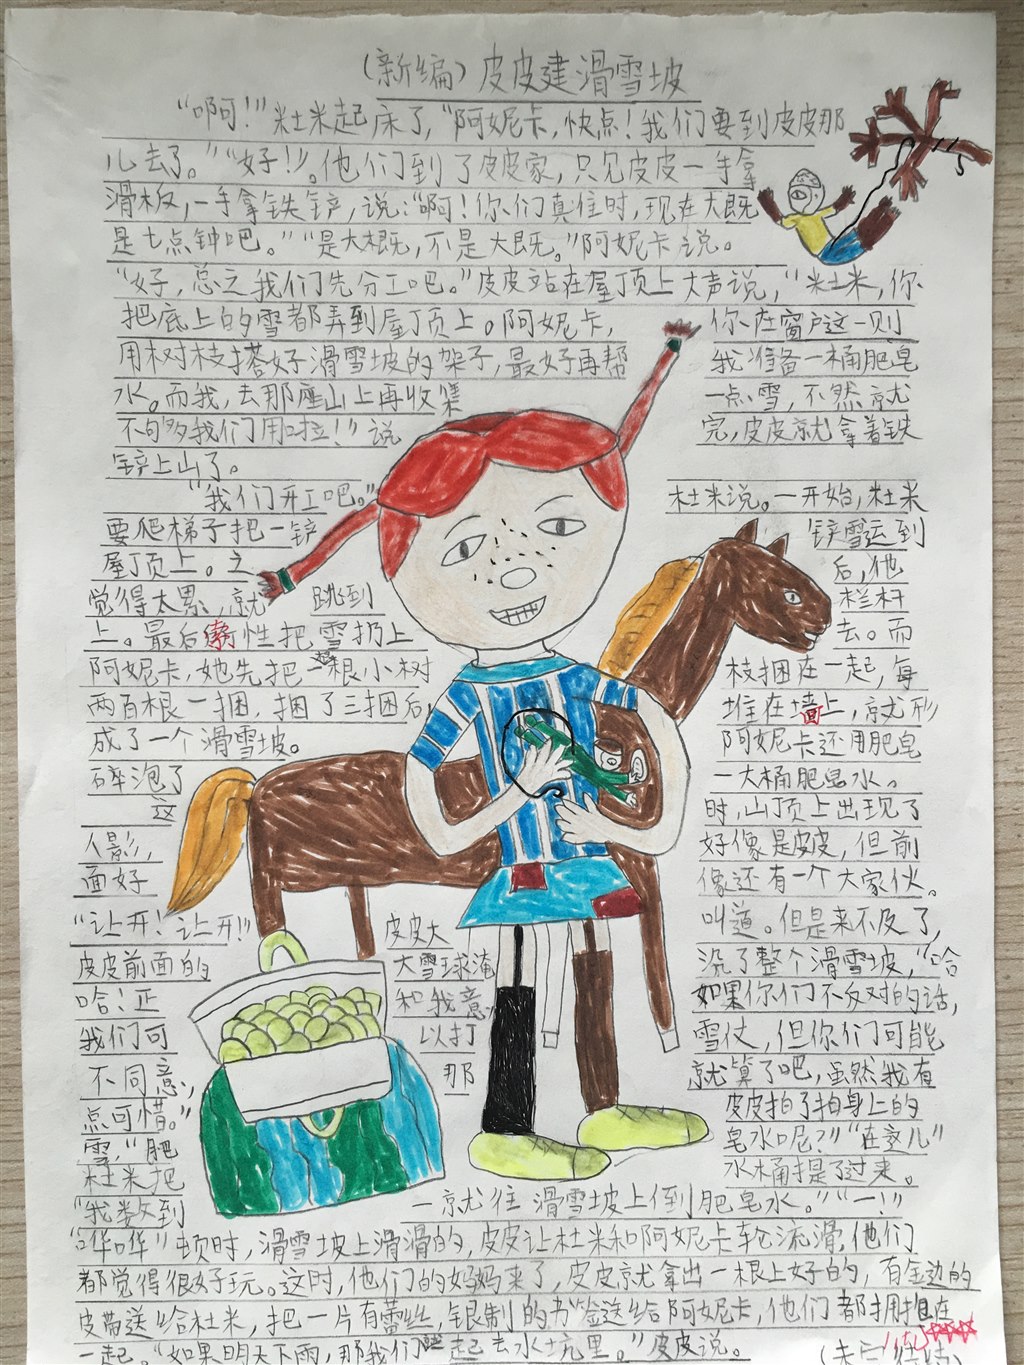 (新编)皮皮建滑雪坡
“啊!”杜米起床了,“阿妮卡,快点!我们要到皮皮那
儿去了。”“好!”。他们到了皮皮家,只见皮皮一手拿
滑板,一手拿铁铲,说:“啊!你们真准时,现在大既
是七点钟吧。”“是大概,不是大既。”阿妮卡说。
“好,总之我们先分工吧。”皮皮站在屋顶上大声说,“杜米,你
把底上的雪都弄到屋顶上。阿妮卡, 你在窗户这一则
用树枝搭好滑雪坡的架子,最好再帮 我准备一桶肥皂
水。而我,去那座山上再收集 一点雪,不然就
不够我们用啦!”说 完,皮皮就拿着铁
铲上山了。
“我们开工吧。” 杜米说。一开始,杜米
要爬梯子把一铲 铲雪运到
屋顶上。之 后,他
觉得太累,就 跳到 栏杆
上。最后索性把雪扔上 去。而
阿妮卡,她先把一根小树 枝捆在一起,每
两百根一捆,捆了三捆后, 堆在墙上,就形
成了一个滑雪坡。 阿妮卡还用肥皂
碎泡了 一大桶肥皂水。
这 时,山顶上出现了
人影, 好像是皮皮,但前
面好 像还有一个大家伙。
“让开!让开!” 皮皮大 叫道。但是来不及了,
皮皮前面的 大雪球淹 没了整个滑雪坡,“哈
哈!正 和我意, 如果你们不反对的话,
我们可 以打 雪仗,但你们可能
不同意, 那 就算了吧,虽然我有
点可惜。” 皮皮拍了拍身上的
雪,“肥 皂水呢?”“在这儿”
杜米把 水桶提了过来。
“我数到 一就往滑雪坡上倒肥皂水。”“一!”
“哗哗”顿时,滑雪坡上滑滑的,皮皮让杜米和阿妮卡轮流滑,他们
都觉得很好玩。这时,他们的妈妈来了,皮皮就拿出一根上好的,有金边的
皮带送给杜米,把一片有蕾丝,银制的书签送给阿妮卡,他们都拥抱在
一起。“如果明天下雨,那我们一起去水坑里。”皮皮说。